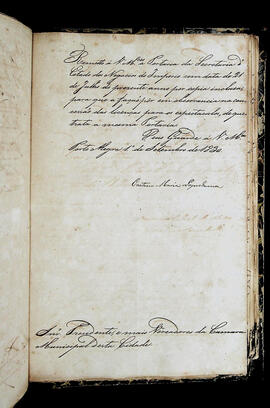 Remetto a V. Mces a Portaria da Secretaria d'
Estado do Negocios do Imperio com data de 21
de Julho do presente anno por copia inclusa
para que a fação pôr em observancia na con
cessão das licenças para os espectaculos, de que
trata a mesma Portaria.
Deos Guarde a V. Mces
Porto Alegre 1 de Setembro de 1830
Caetano Maria Lopes Gama
Snrs Presidente, e mais Vereadores da Camara
Municipal desta Cidade